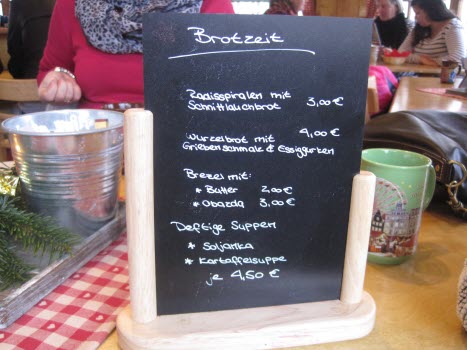 Brotzeit
Radisspiralen mit
Schnittlauchbrot 3,00 €
Wurzelbrot mit 4,00 €
Griebenschmalz & Essiggurken
Brezel mit:
* Butter 2,00 €
* Obazda 3,00 €
Deftige Suppen
* Soljanka
* Kartoffelsuppe
je 4,50 €